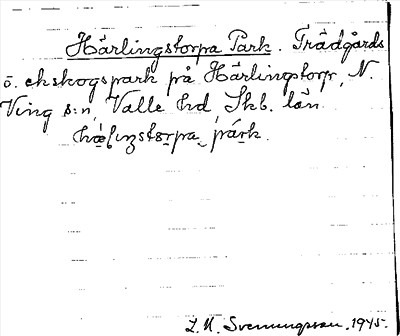 Härlingstorpa Park. Trädgårds
ö. ekskogspark på Härlingstorp, N.
Ving s:n, Valle hd, Skb. län.
park.
Svenungsson. 1945.